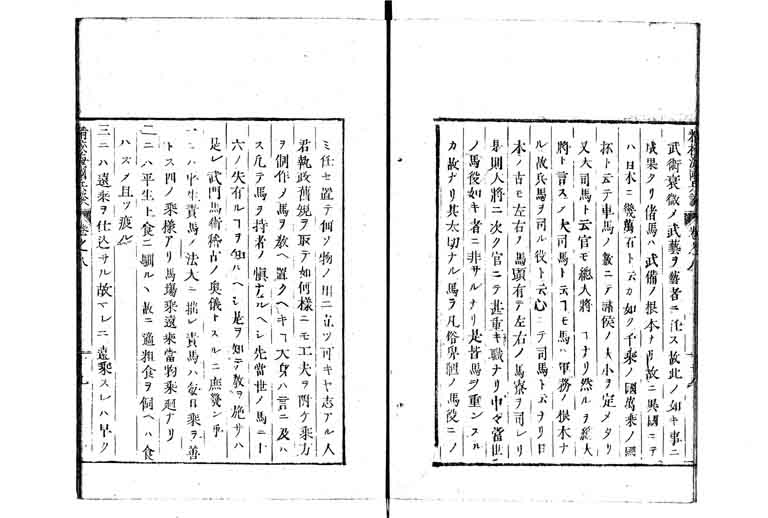 武術衰微ノ武藝ヲ藝者ニ任ス故此ノ如キ事ニ
成果タリ偖馬ハ武備ノ根本ナリ故ニ異國ニテ
ハ日本ニ幾萬石ト云カ如ク千乘ノ國萬乘ノ國
杯ト云テ車馬ノ數ニテ諸侯ノ大小ヲ定メタリ
又大司馬ト云官モ總大將ノコナリ然ルヲ總大
將ト言スノ大司馬ト云コモ馬ハ軍務ノ根本ナ
ル故兵馬ヲ司ル役ト云心ニテ司馬ト云ナリ日
本ノ古モ左右ノ馬頭有テ左右ノ馬寮ヲ司レリ
是則人將ニ次ク官ニテ甚重キ職ナリ中々當世
ノ馬役如キ者ニ非サルナリ是皆馬ヲ重ンスル
カ故ナリ其大切ナル馬ヲ凡俗卑劣ノ馬役ニノ
ミ任セ置テ何ソ物ノ用ニ立ツ可キヤ志アル人
君執政舊規ヲ取テ如何樣ニモ工夫ヲ附ケ乘方
ヲ制作メ馬ヲ敎ヘ置クヘキコ大身ハ言ニ及ハ
ス凡テ馬ヲ持者ノ愼ナルヘシ先當世ノ馬ニ十
六ノ失有ルコヲ知ルヘシ是ヲ知テ敎ヲ施サハ
是レ武門馬術稽古ノ奧儀トスルニ庶幾シ乎
一ニハ平生責馬ノ法大ニ拙シ責馬ハ每日乘ヲ善
トス四ノ乘樣アリ馬場乘遠乘當物乘廻ナリ
二ニハ平生上食ニ馴ルヽ故ニ適粗食ヲ飼ヘハ食
ハス且ツ疲ル
三ニハ遠乘ヲ仕込サル故マレニ遠乘スレハ早ク
卷之八
十九